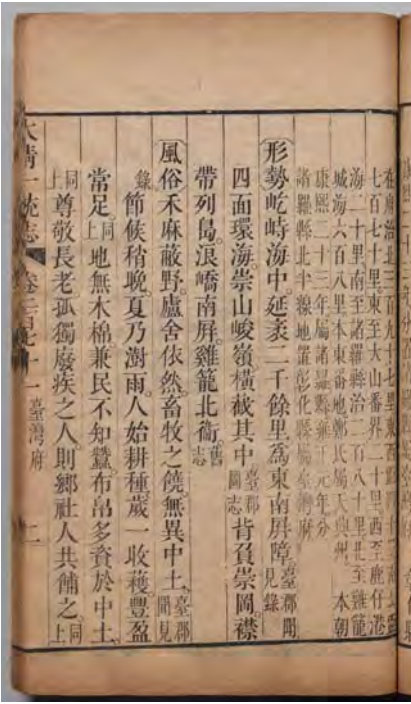 在府治北三百九十七里東西距
七百七十里東至大山番界二十里西至鹿仔港
海二十里南至諸羅縣治二百八十里北至雞籠
城海六百八里本東番地鄭氏屬天興州 本朝
康熙二十三年屬諸羅縣雍正元年分
諸羅縣北半線地置彰化縣屬臺灣府
形勢屹峙海中延袤二千餘里爲東南屏障臺郡聞見錄
四面環海崇山峻嶺橫截其中臺郡圖志背負崇岡襟
帶列島浪嶠南屏雞籠北衞舊志
風俗禾麻蔽野廬舍依然畜牧之饒無異中土臺郡聞見
錄節候稍晚夏乃澍雨人始耕種歲一收穫豐盈
常足同上地無木棉兼民不知蠶布帛多資於中土
同上尊敬長老孤獨廢疾之人則鄉社人共餔之同上
大清一統志 卷二百七十一 臺灣府 二